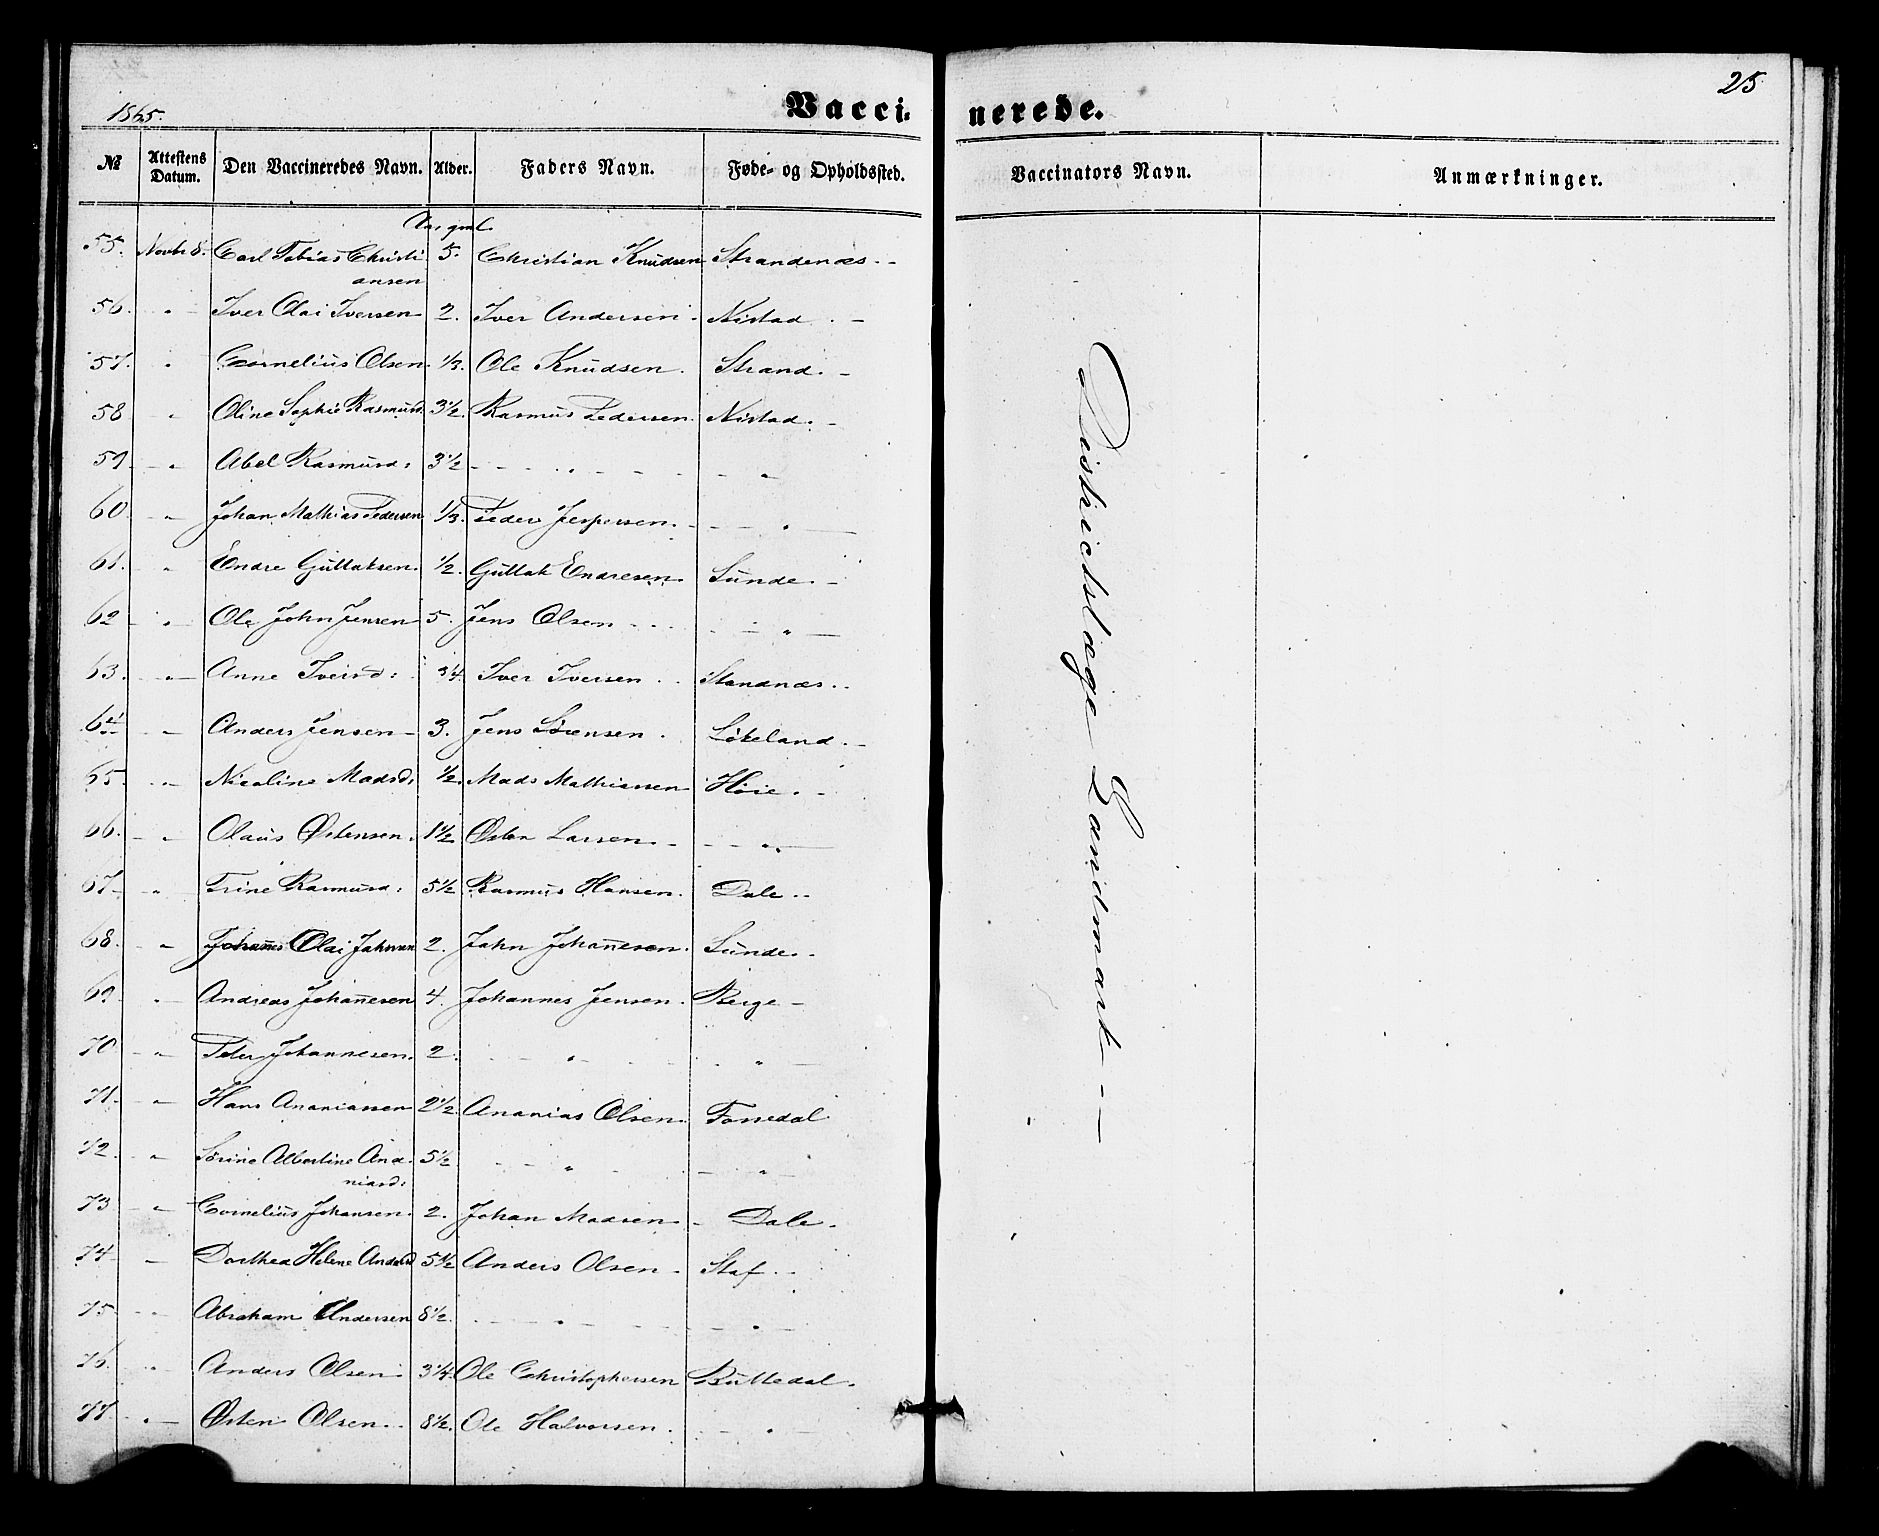 25
1865.
Vacci- nerede.
№ Attestens Datum. Den Vaccineredes Navn. Alder. Faders Navn. Føde- og Opholdssted. Vaccinators Navn. Anmærkninger.
Aar gml.
55. Novbr 8. Carl Tobias Christi 5. Christian Knudsen Strandenæs. -
ansen
56. " Iver Olai Iversen 2. Iver Andersen. Nistad. -
57. " Cornelius Olsen. 1/3. Ole Knudsen. Strand. -
58 " Oline Sophie Rasmusd. 3 1/2. Rasmus Pedersen. Nistad. -
59 - " Abel Rasmusd: 3 1/2 - - " - - "
60 - " Johan Mathias Pedersen 1/3. Peder Jespersen. - - - " -
61. " Endre Guttaksen. 1/2. Guttak Endresen. Sunde. -
62 - " Ole John Jensen 5. Jens Olsen - - - - " -
63. - " - Anne Iversd: 3/4. Iver Iversen. Standnæs. -
64 - " Anders Jensen - 3. Jens Sørensen. Løkeland. -
65 " Nicoline Madsd: 1/2. Mads Mathiassen Høie. -
66. - " Olaus Østensen. 1 1/2 Østen Larsen. - - - " -
67 - " Trine Rasmusd: 5 1/2 Rasmus Hansen. Dale. -
68. - " Johannes Olai Johnsen 2. John Johannesen. Sunde. -
69 - " - Andreas Johannesen 4. Johannes Jensen. Berge -
70 - " Peder Johannesen. 2. - - " - - " -
71. - " Hans Ananiassen 2 1/2. Ananias Olsen. Fossedal
72. - " Sørine Albertine Ana 5 1/2 - - " - - " -
niasd:
73 - " Cornelius Johansen. 2. Johan Madsen - - Dale. -
74 - " Dorthea Helene Andersd 5 1/2 Anders Olsen - Staf. -
75 - " Abraham Andersen 8 1/2. - - " - - " -
76. " Anders Olsen. 3 1/4. Ole Christophersen Buttedal.
77 - " - Østen Olsen. - 8 1/2. Ole Halvorsen. - - " -
Districtslæge Landmark -